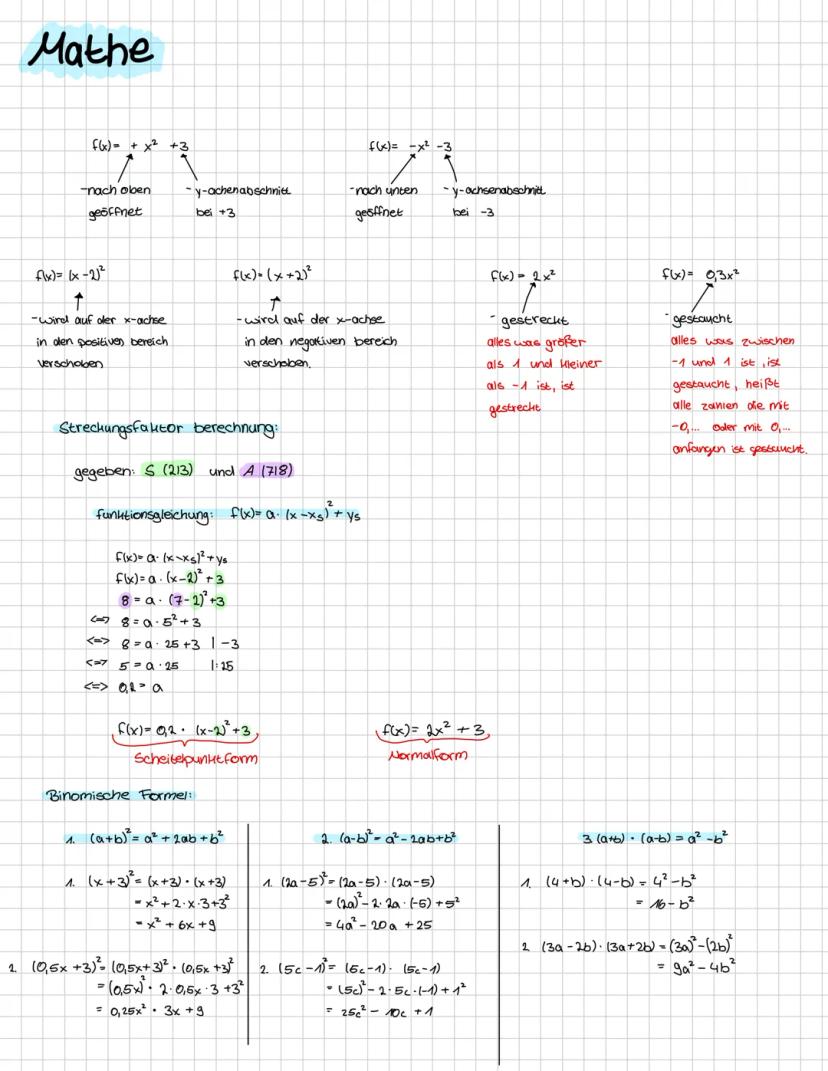 Mathe
f(x)= + x² +3
-nach oben
geöffnet
- y-achenabschnitt
bei +3
f(x)= -x² -3
-nach unten
geöffnet
- y-achsenabschnitt
bei -3
f(x)= (x-2)²
-wird auf der x-achse
in den positiven bereich
verschoben
f(x)= (x+2)²
-wird auf der x-achse
in den negativen bereich
verschoben.
f(x) = 2x²
- gestreckt
alles was größer
als 1 und kleiner
als -1 ist, ist
gestreckt
f(x)= 0,3x²
- gestaucht
alles was zwischen
-1 und 1 ist, ist
gestaucht, heißt
alle zahlen die mit
-0,... oder mit 0,...
anfangen ist gestaucht.
Streckungsfaktor berechnung:
gegeben: S (2|3) und A (7|8)
funktionsgleichung: f(x)= a· (x-xs)² + ys
f(x)= a· (x-xs)² + ys
f(x)= a · (x-2)² + 3
8 = a · (7-2)² +3
<=> 8 = a · 5² + 3
<=> 8 = a · 25 +3 | -3
<=> 5 = a · 25 |: 25
<=> 0,2 = a
f(x)= 0,2 · (x-2)² +3
Scheitelpunktform
f(x)= 2x² + 3
Normalform
Binomische Formel:
1. (a+b)² = a² + 2ab + b²
1. (x+3)² = (x+3) · (x+3)
= x² + 2·x·3+3²
= x² + 6x +9
2. (0,5x +3)² = (0,5x+3)² · (0,5x +3)²
= (0,5x)² · 2·0,5x·3 +3²
= 0,25x² · 3x +9
2. (a-b)² = a² - 2ab+b²
1. (2a-5)² = (2a-5) · (2a-5)
= (2a)² - 2·2a·(-5) +5²
= 4a² - 20a +25
2. (5c-1)² = (5c-1) · (5c-1)
= (5c)² - 2·5c·(-1) + 1²
= 25c² - 10c +1
3 (a+b) · (a-b) = a² - b²
1. (4+b) · (4-b) = 4² - b²
= 16 - b²
2 (3a-2b)·(3a+2b) = (3a)² - (2b)²
= 9a² - 4b²